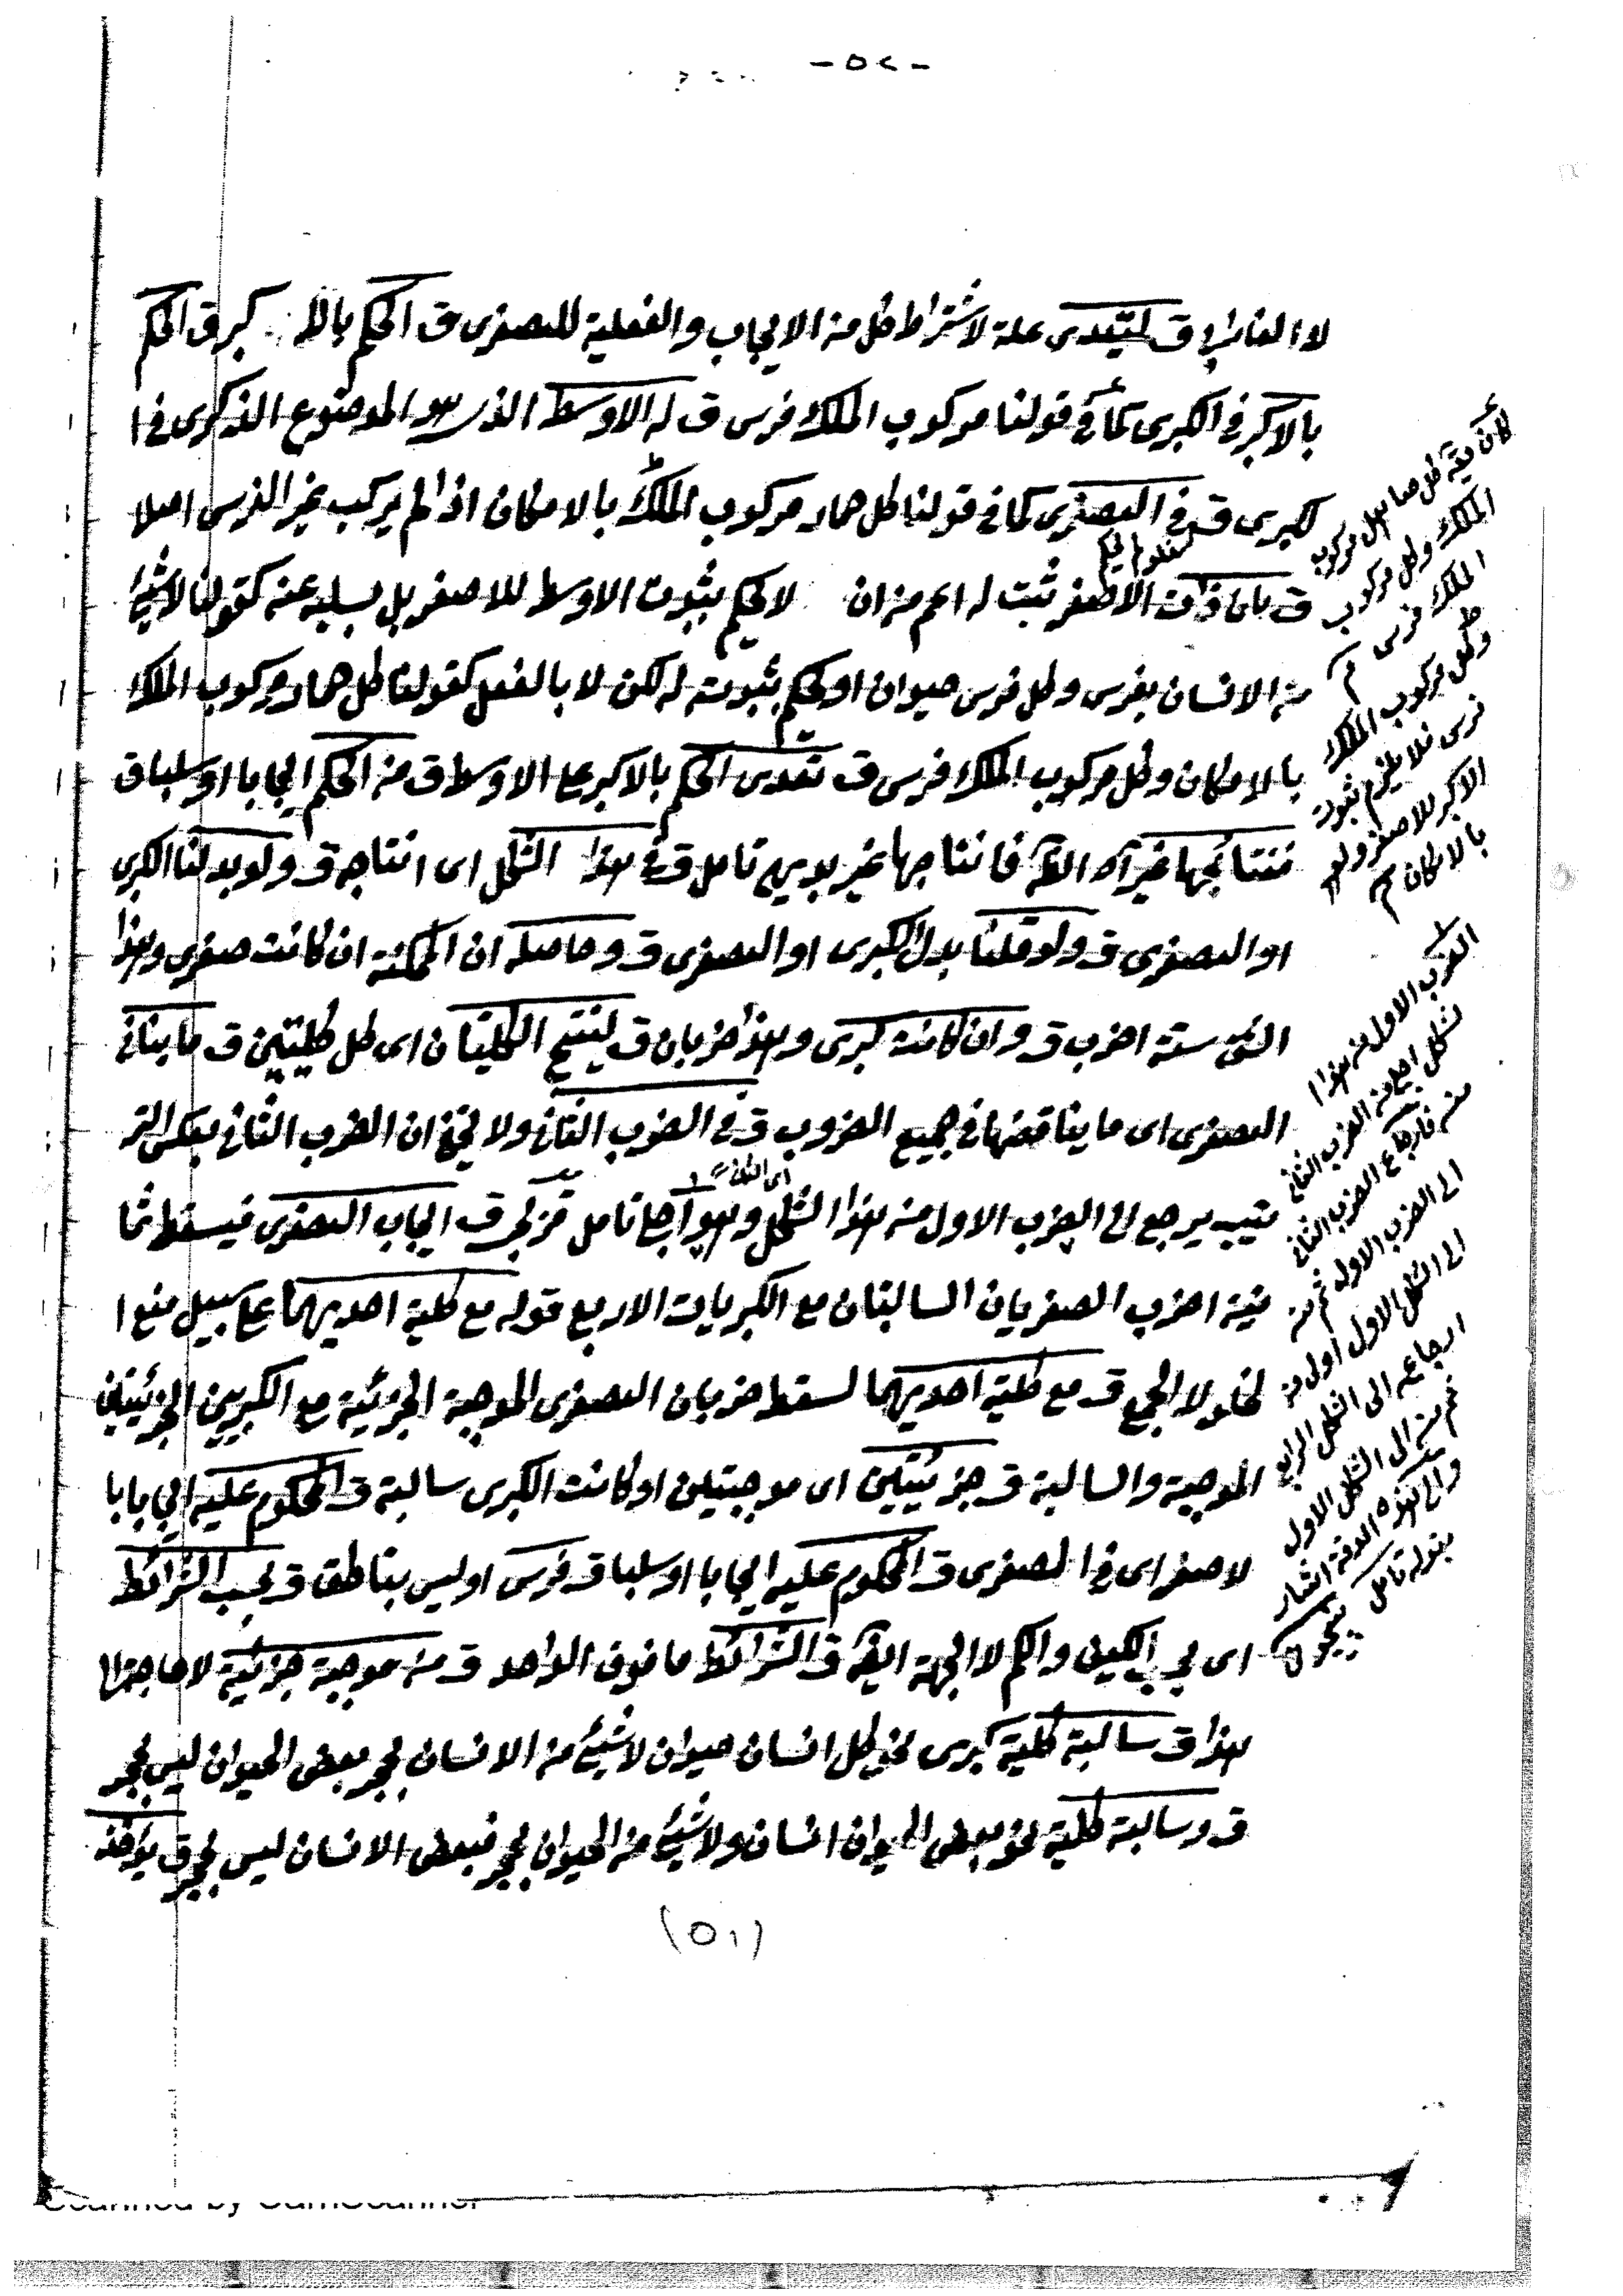 - ٥٢ -
لا الفارابي ق ليتعدى علة لاشتراط كل من الايجاب والفعلية للصغرى ق الحكم بالا كبر ق الحكم
بالاكبر في الكبرى كما في قولنا مركوب الملك فرس ق له الاوسط الذي هو الموضوع الذكرى في ا
لكبرى ق في الصغرى كما في قولنا كل حمار مركوب الملك بالامكان اذا لم يركب غير الفرس اصلا
ق بان ذات الاصغر ثبت له اعم من ان لا يحكم بثبوت الاوسط للاصغر بل بسلبه عنه كقولنا لا شيئ
من الانسان بفرس وكل فرس حيوان او يحكم بثبوته له لكن لا بالفعل كقولنا كل حمار مركوب الملك
بالامكان وكل مركوب الملك فرس ق تعدى الحكم بالاكبر على الاوسط ق من الحكم ايجابا او سلبا ق
فنتائجها غير آه فانتاجها غير بديهي تامل ق في هذا الشكل اى انتاجه ق ولو بدلنا الكبرى
او الصغرى ق ولو قلنا بدل الكبرى او الصغرى ق وحاصله ان الممكنة ان كانت صغرى وهذا
ستة اضرب ق وان كانت كبرى وهذا ضربان ق لينتج الكليتان اى كل كليتين ق ما ينافى
الصغرى اى ما يناقضها في جميع الضروب ق في الضرب الثانى ولا يخفى ان الضرب الثانى بعكس التر
تيب يرجع الى الضرب الاول من هذا الشكل وهو اجلى تامل ق ايجاب الصغرى فيسقط ثما
نية اضرب الصغريان السالبتان مع الكبريات الاربع قوله مع كلية احديهما على سبيل منع ا
لخلو لا الجمع ق مع كلية احديهما لسقط ضربان الصغرى الموجبة الجزئية مع الكبريين الجزئيتين
الموجبة والسالبة ق جزئيتين اى موجبتين او كانت الكبرى سالبة ق المحكوم عليه ايجابا با
لاصغر اى في الصغرى ق المحكوم عليه ايجابا او سلبا ق فرس او ليس بناطق ق بحسب الشرائط
اى بحسب الكيف والكم لا الجهة ق الشرائط ما فوق الواحد ق من موجبة جزئية لا حاجة الى
هذا ق سالبة كلية كبرى نحو كل انسان حيوان لا شيئ من الانسان بحجر بعض الحيوان ليس بحجر
ق وسالبة كلية نحو بعض الحيوان انسان ولا شيئ من الحيوان بحجر فبعض الانسان ليس بحجر ق
الملك وكل مركوب
الملك فرس
وكل مركوب الملك
فرس فلا يلزم ثبوت
الاكبر للاصغر ولو
بالامكان
الضرب الاول من هذا ا
لشكل اجلى من الضرب الثانى
منه فارجاع الضرب الثانى
الى الضرب الاول ثم منه
الى الشكل الاول اولى من
ارجاعه الى الشكل الرابع
ثم منه الى الشكل الاول
والى هذه الدقة اشار
بقوله تامل
(٥١)
Scanned by CamScanner